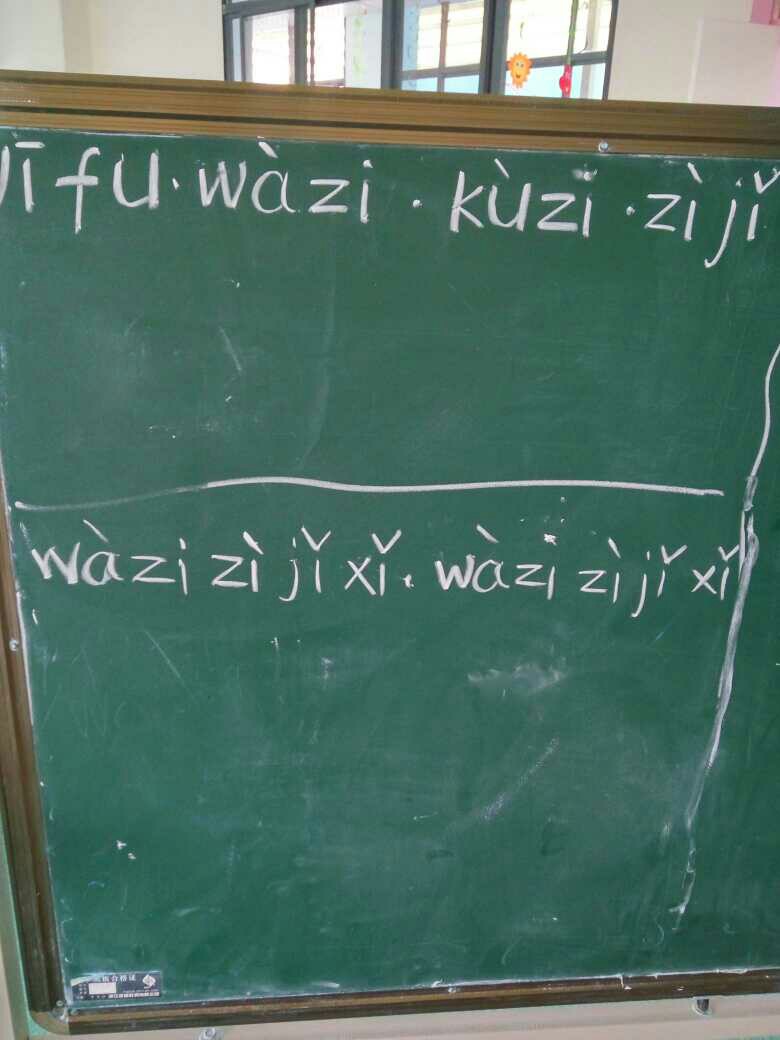 fu · wàzi · kùzi · zìjǐ
wàzi zìjǐ xǐ. wàzi zìjǐ xǐ
合格证